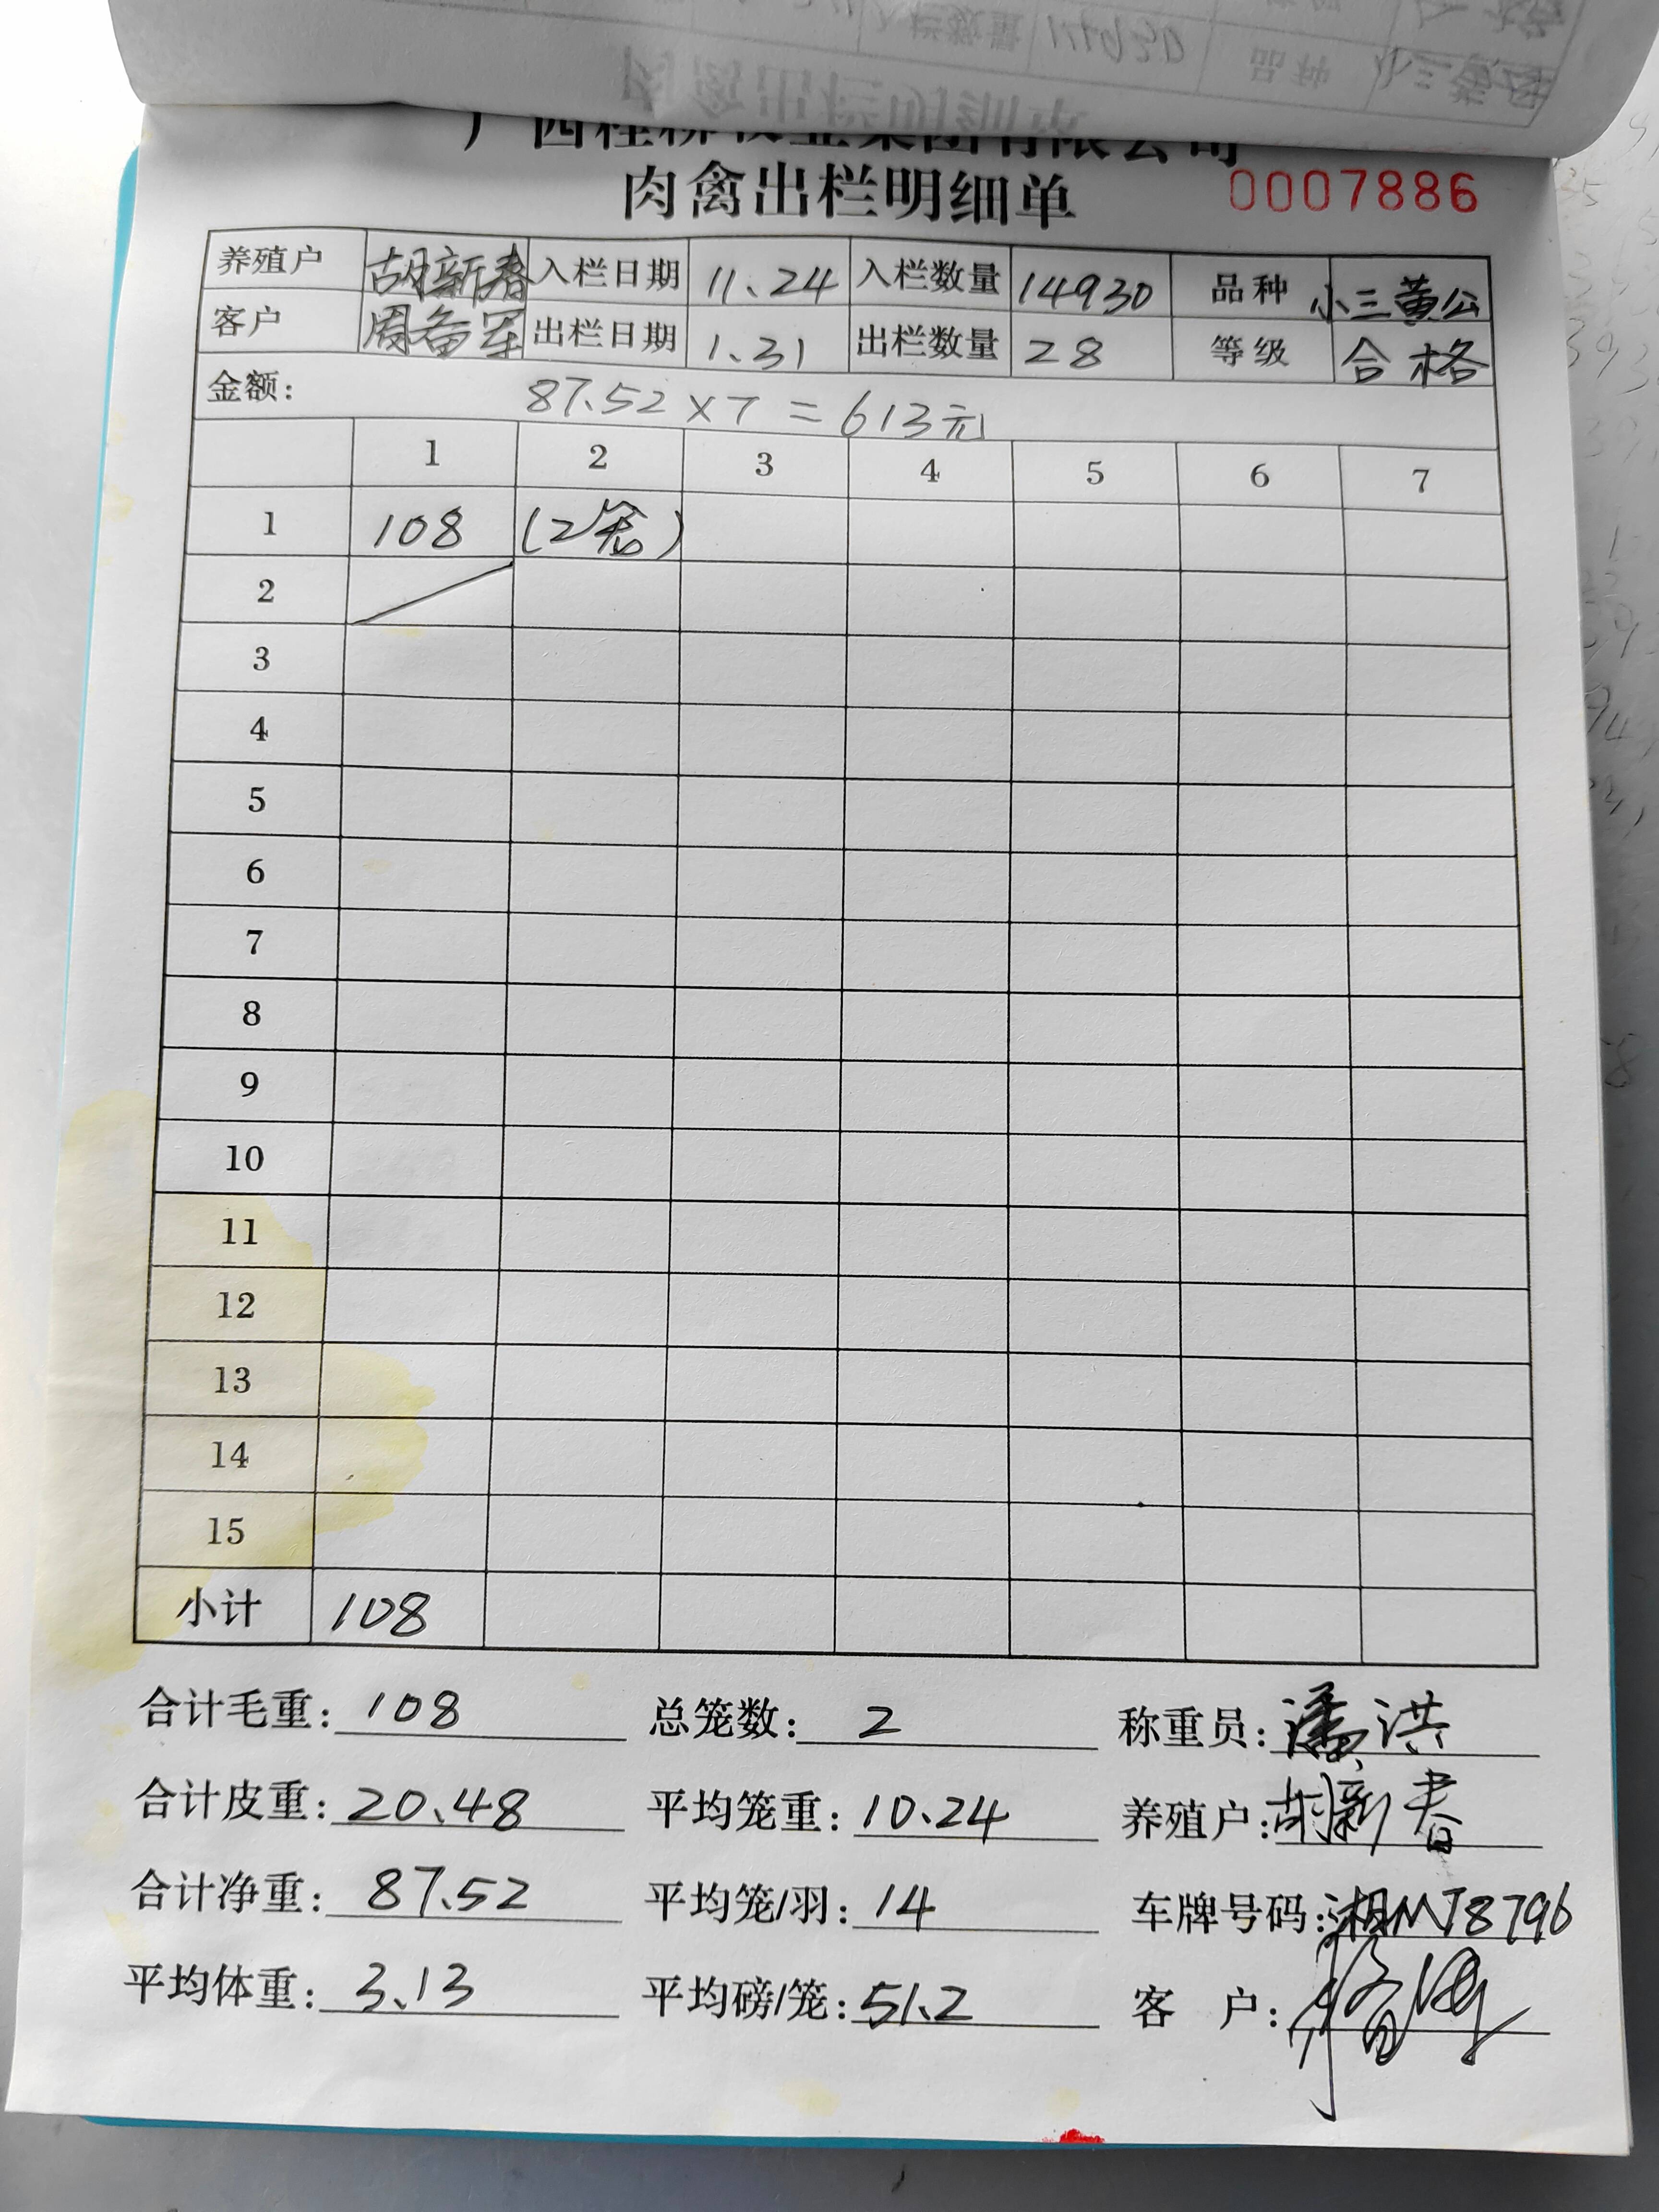 广西桂柳牧业集团有限公司
肉禽出栏明细单 0007886
养殖户 胡新春 入栏日期 11、24 入栏数量 14930 品种 小三黄公
客户 周备军 出栏日期 1、31 出栏数量 28 等级 合格
金额: 87、52×7=613元
1 2 3 4 5 6 7
1 108 (2笼)
2
3
4
5
6
7
8
9
10
11
12
13
14
15
小计 108
合计毛重: 108 总笼数: 2 称重员: 潘洪
合计皮重: 20、48 平均笼重: 10、24 养殖户: 胡新春
合计净重: 87、52 平均笼/羽: 14 车牌号码: 湘MJ8796
平均体重: 3、13 平均磅/笼: 51、2 客 户: